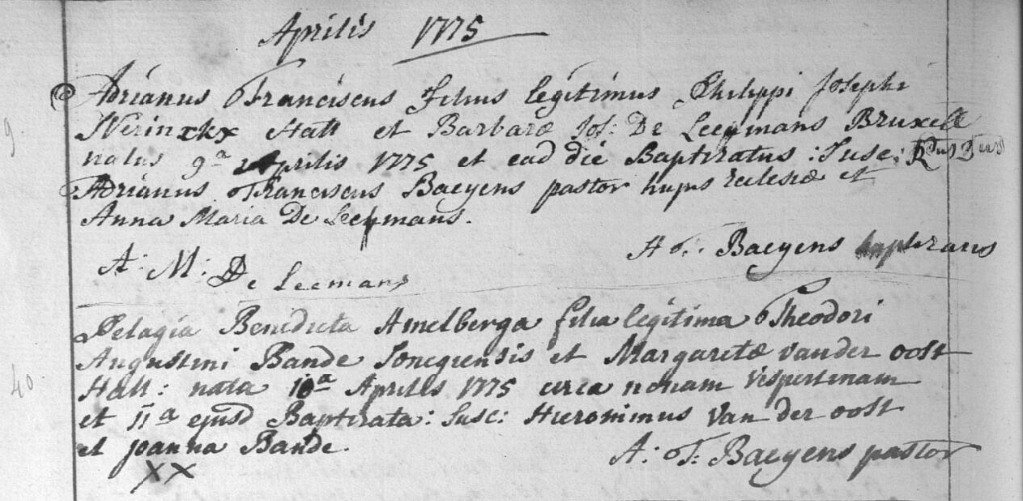 Aprilis 1775
9.
Adrianus Franciscus filius legitimus Philippi Josephi
Nerinckx Hall et Barbaræ Jos: De Leeymans Bruxell
natus 9a Aprilis 1775 et ead die Baptizatus: Susc: Rdus Dnus
Adrianus Franciscus Baeyens pastor hujus Ecclesiæ et
Anna Maria De Leeymans.
A: F: Baeyens baptizans
A: M: De Leemans
40.
Pelagia Benedicta Amelberga filia legitima Theodori
Augustini Bande Sonegiensis et Margaretæ vander oost
Hall: nata 10a Aprilis 1775 circa nonam vespertinam
et 11a ejusd Baptizata: Susc: Hieronimus Van der oost
et joanna Bande.
A: F: Baeyens pastor
XX